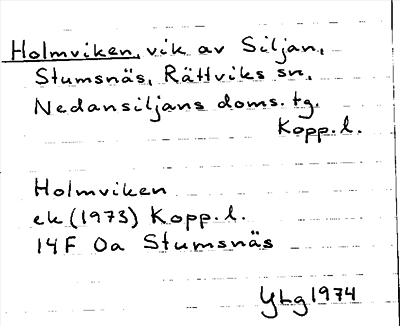 Holmviken, vik av Siljan,
Stumsnäs, Rättviks sn,
Nedansiljans doms. tg.
Kopp. l.
Holmviken
ek (1973) Kopp. l.
14F 0a Stumsnäs
YLg 1974